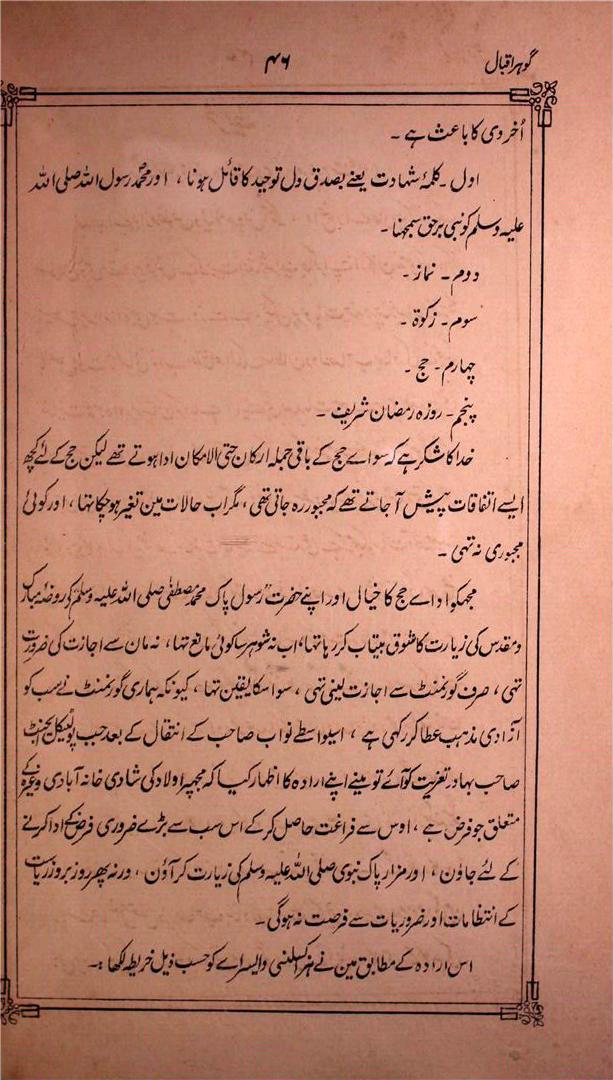 گوہر اقبال
۴۶
اُخروی کا باعث ہے ۔
اول ۔ کلمۂ شہادت یعنے بصدق دل توحید کا قائل ہونا ، اور محمد رسول اللہ صلی اللہ
علیہ وسلم کو نبی برحق سمجھنا ۔
دوم ۔ نماز ۔
سوم ۔ زکوٰۃ ۔
چہارم ۔ حج ۔
پنجم ۔ روزہ رمضان شریف ۔
خدا کا شکر ہے کہ سواے حج کے باقی جملہ ارکان حتی الامکان ادا ہوتے تھے لیکن حج کے لئے کچھ
ایسے اتفاقات پیش آ جاتے تھے کہ مجبور رہ جاتی تھی ، مگر اب حالات مین تغیر ہو چکا تہا ، اور کوئی
مجبوری نہ تہی ۔
مجہکو اداے حج کا خیال اور اپنے حضرت رسول پاک محمد مصطفٰی صلی اللہ علیہ وسلم کے روضۂ مبارک
و مقدس کی زیارت کا شوق بیتاب کر رہا تہا، اب نہ شوہر کا کوئی مانع تہا ، نہ مان سے اجازت کی ضرورت
تہی ، صرف گورنمنٹ سے اجازت لینی تہی ، سو اسکا یقین تہا ، کیونکہ ہماری گورنمنٹ نے سب کو
آزادی مذہب عطا کر رکہی ہے ، اسیواسطے نواب صاحب کے انتقال کے بعد جب پولیٹکل ایجنٹ
صاحب بہادر تعزیت کو آے تو مینے اپنے ارادہ کا اظہار کیا کہ مجہپر اولاد کی شادی خانہ آبادی وغیرہ کے
متعلق جو فرض ہے ، اوس سے فراغت حاصل کر کے اس سب سے بڑے ضروری فرض کے ادا کرنے
کے لئے جاؤن ، اور مزار پاک نبوی صلی اللہ علیہ وسلم کی زیارت کر آؤن ، ورنہ پھر روز بروز ریاست
کے انتظامات اور ضروریات سے فرصت نہ ہوگی ۔
اس ارادہ کے مطابق مین نے ہز اکسلنسی وایسراے کو حسب ذیل خریطہ لکہا :۔